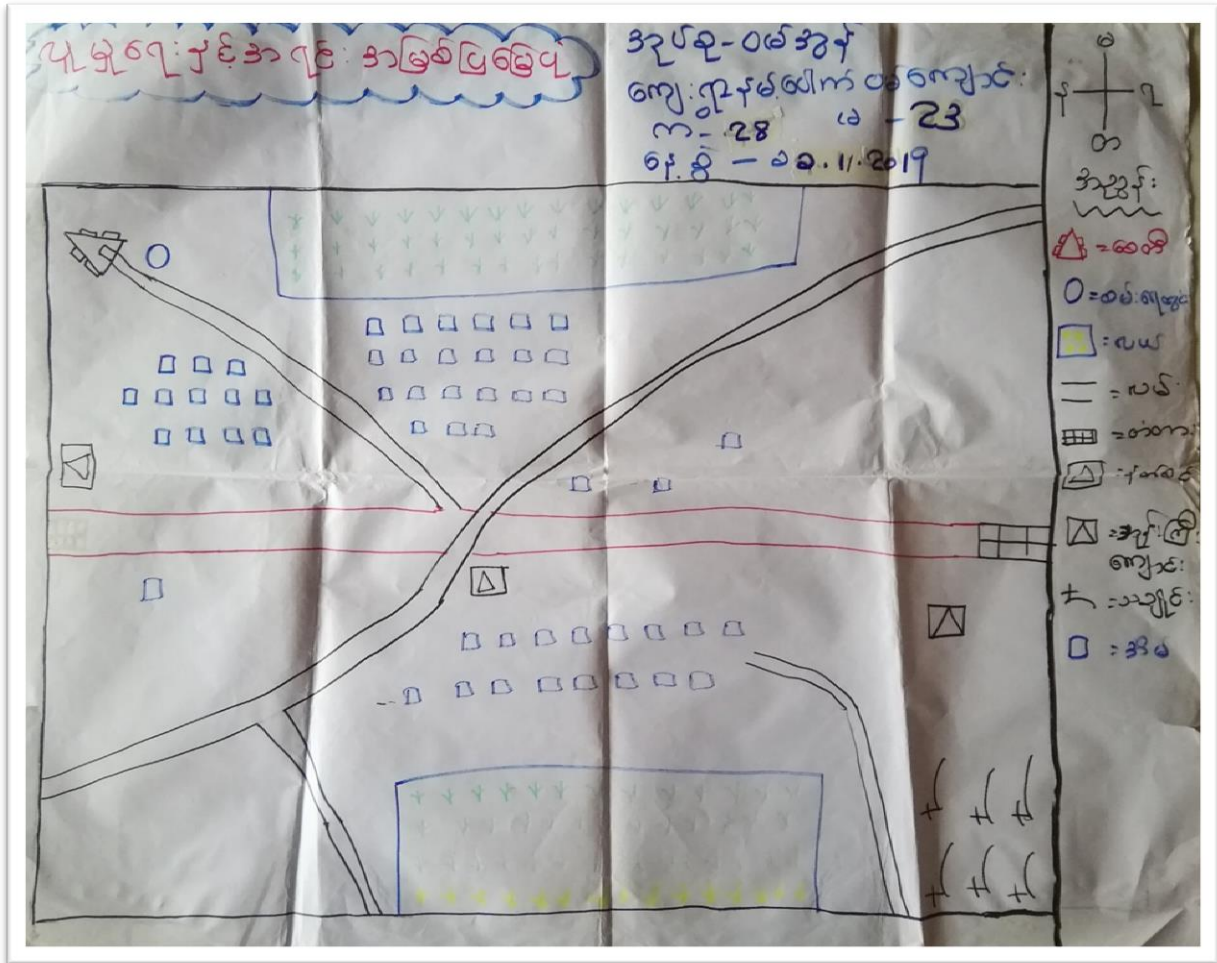 လူမှုရေးနှင့်အရင်းအမြစ်ပြမြေပုံ
အုပ်စု-ဝမ်အွန်
ကျေးရွာနမ့်ပေါက်ဝမ်ကျောင်း
က- 28 မ - 23
နေ့စွဲ - ၁၁.11.2019
မ
န ရ
တ
အညွှန်း
=စေတီ
=ထမ်းရေတွင်း
=လယ်
=လမ်း
=တံတား
=နတ်စင်
=ဘုန်းကြီး
ကျောင်း
=သချိုင်း
=အိမ်